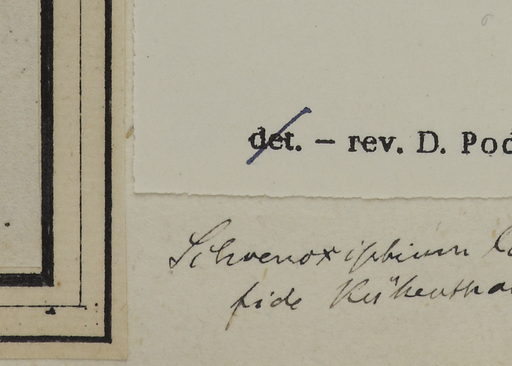 det. – rev. D. Pod
Schoenoxiphium
fide Kükentha